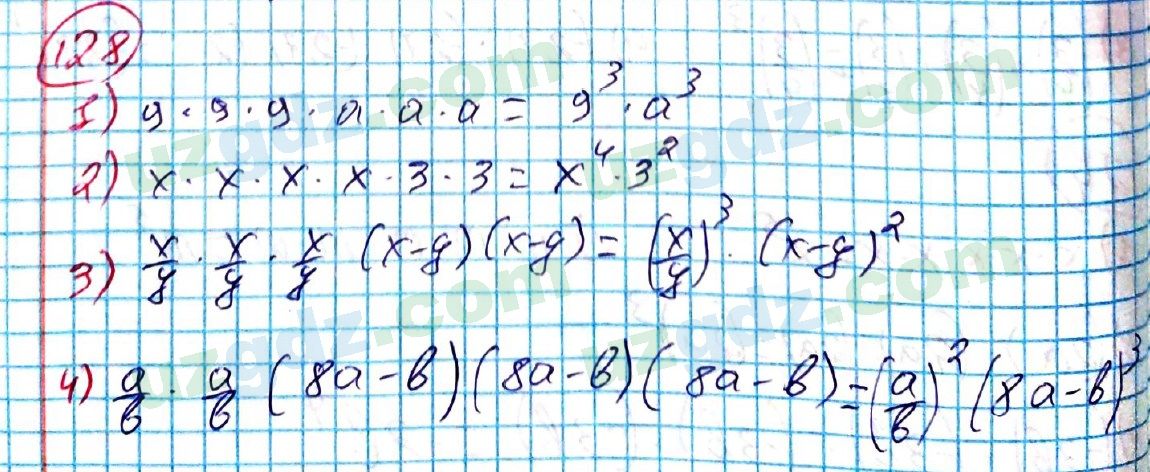 128
1) 9 · 9 · 9 · a · a · a = 9³ · a³
2) x · x · x · x · 3 · 3 = x⁴ · 3²
3) x/y · x/y · x/y (x-y)(x-y) = (x/y)³ · (x-y)²
4) a/b · a/b (8a-b)(8a-b)(8a-b) = (a/b)² (8a-b)³
uzgdz.com
uzgdz.com
uzgdz.com
uzgdz.com
uzgdz.com